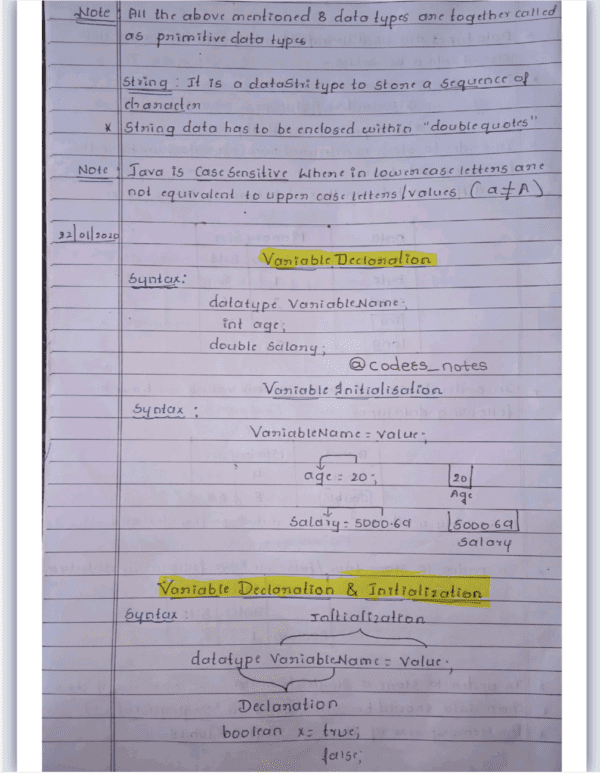 Note : All the above mentioned 8 data types are together called
as primitive data types
String : It is a dataStri type to store a sequence of
character
* String data has to be enclosed within "double quotes"
Note : Java is Case Sensitive Where in lowercase letters are
not equivalent to upper case letters/values (a≠A)
22/01/2020
Variable Declaration
Syntax:
datatype VariableName;
int age;
double Salary;
@codees_notes
Variable Initialisation
Syntax :
VariableName = Value;
age = 20;
20
Age
Salary = 5000.69
5000 69
Salary
Variable Declaration & Initialization
Syntax
Initialization
datatype VariableName = Value;
Declaration
boolean x = true;
false;